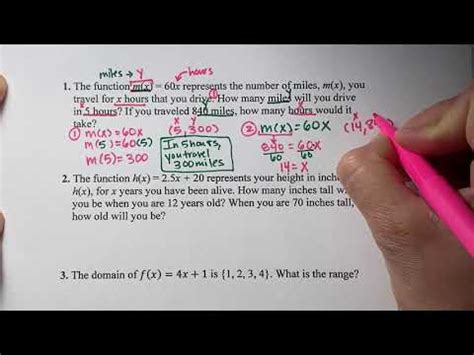 miles → y
hours
1. The function m(x) = 60x represents the number of miles, m(x), you
travel for x hours that you drive. How many miles will you drive
in 5 hours? If you traveled 840 miles, how many hours would it
take?
① m(x)=60x
m(5)=60(5)
m(5)=300
x y
(5,300)
In 5 hours,
you travel
300 miles
② m(x)=60x
840=60x
60 60
14=x
x
(14,8
2. The function h(x) = 2.5x + 20 represents your height in inch
h(x), for x years you have been alive. How many inches tall w
you be when you are 12 years old? When you are 70 inches tall,
how old will you be?
3. The domain of f(x) = 4x + 1 is {1, 2, 3, 4}. What is the range?